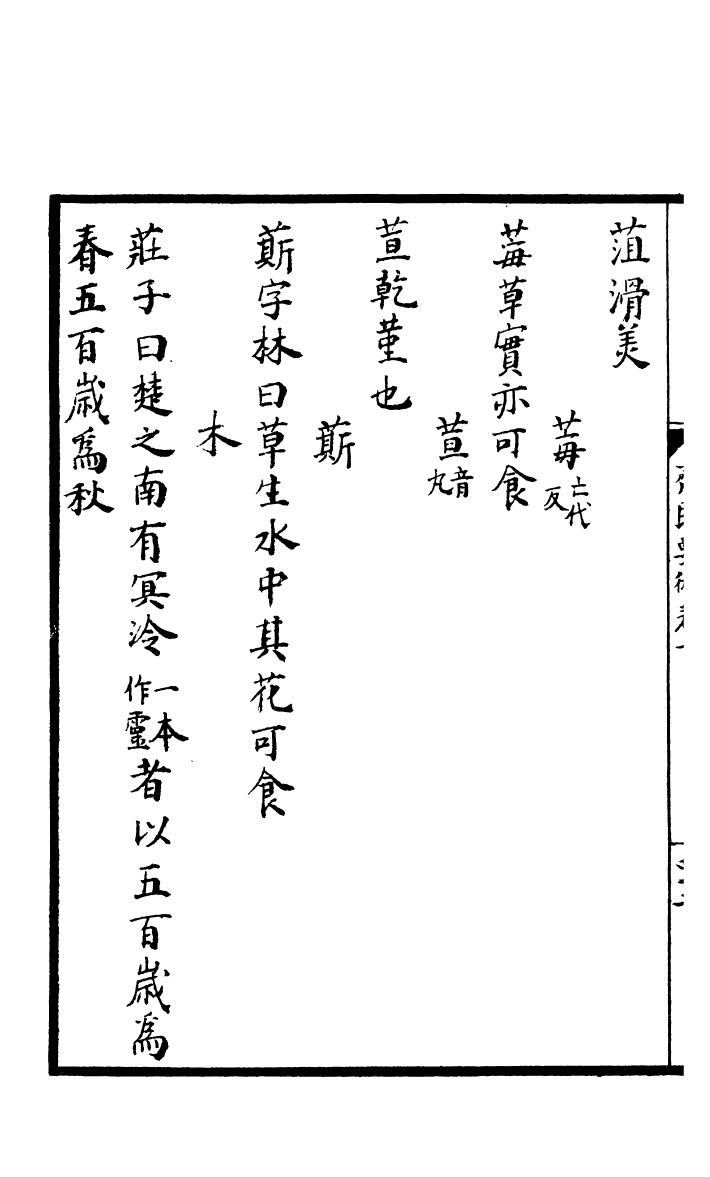 菹滑美
莓亡代反
莓草實亦可食
荁音丸
荁乾堇也
蘄
蘄字林曰草生水中其花可食
木
莊子曰楚之南有冥泠一本作靈者以五百歳為
春五百歳為秋